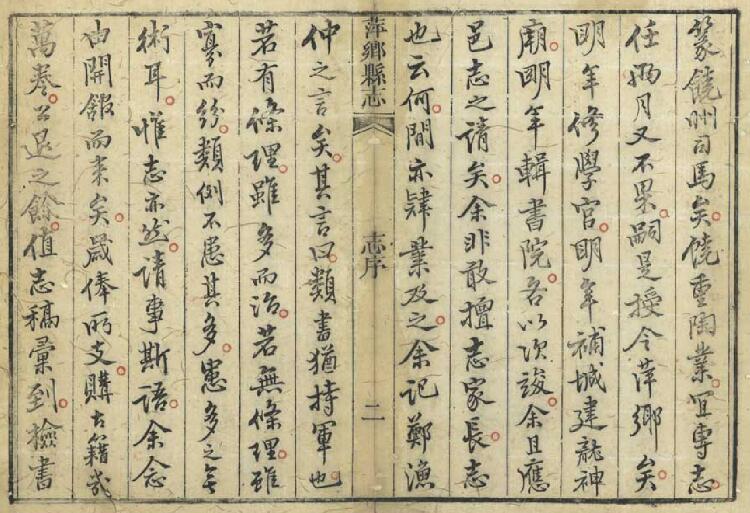 篆饒州司馬矣饒重陶業冝專志
任搦月又不果嗣是授令萍鄉矣
明年修學官明年補城建龍神
廟明年輯書院各以次竣余且應
邑志之請矣余非敢擅志家長志
也云何間亦肄業及之余記鄭漁
萍鄉縣志
志序
二
仲之言矣其言曰類書猶持軍也
若有條理雖多而治若無條理雖
寡而紛類例不患其多患多之無
術耳惟志亦然請事斯語余念
由開館而来矣歲俸所支購古籍幾
萬卷公退之餘值志稿彙到撿書